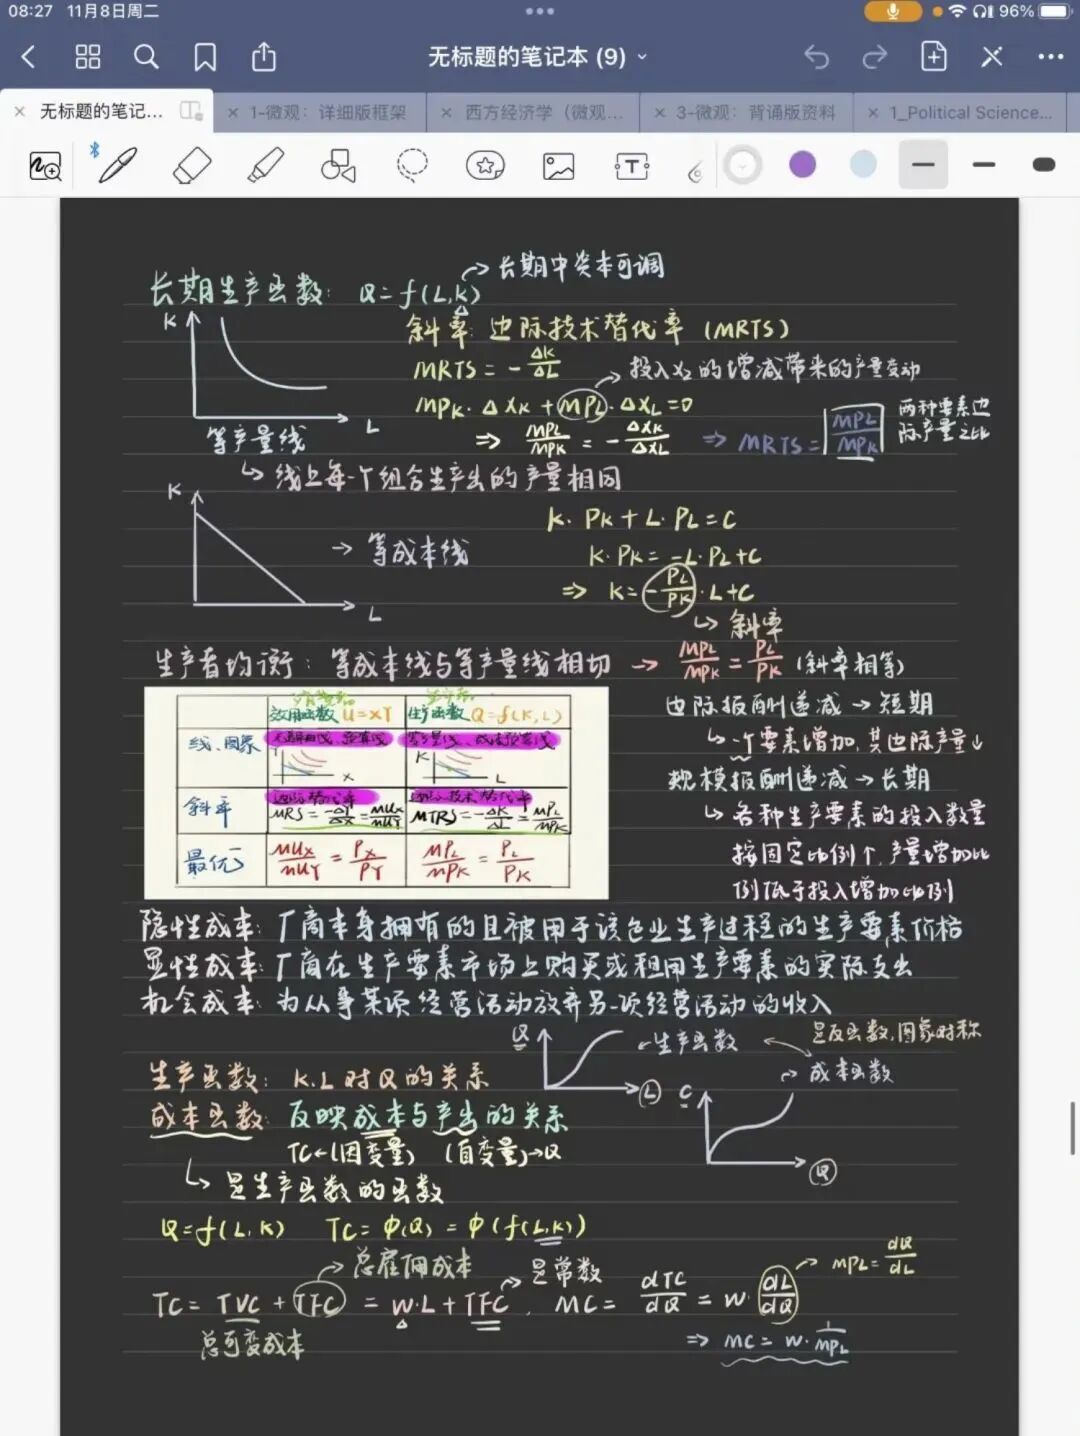 08:27 11月8日周二
96%
无标题的笔记本 (9)
无标题的笔记...
1-微观：详细版框架
西方经济学（微观...
3-微观：背诵版资料
1_Political Science...
长期生产函数: Q=f(L,K)
长期中资本可调
K
L
等产量线
斜率: 边际技术替代率 (MRTS)
MRTS = -ΔK/ΔL
投入x2的增减带来的产量变动
MPK·ΔXK + MPL·ΔXL = 0
⇒ MPL/MPK = -ΔXK/ΔXL ⇒ MRTS = |MPL/MPK|
两种要素边
际产量之比
线上每一个组合生产出的产量相同
K
L
→ 等成本线
K·PK + L·PL = C
K·PK = -L·PL + C
⇒ K = -PL/PK·L + C
斜率
生产者均衡: 等成本线与等产量线相切 → MPL/MPK = PL/PK (斜率相等)
效用函数 U=XY
生产函数 Q=f(K,L)
线、图象
无差异曲线、预算线
X
K
L
斜率
边际替代率
MRS = -ΔY/ΔX = MUX/MUY
边际技术替代率
MTRS = -ΔK/ΔL = MPL/MPK
最优
MUX/MUY = PX/PY
MPL/MPK = PL/PK
边际报酬递减 → 短期
一个要素增加, 其边际产量↓
规模报酬递减 → 长期
各种生产要素的投入数量
按固定比例个, 产量增加比
例低于投入增加比例
隐性成本: 厂商本身拥有的且被用于该企业生产过程的生产要素价格
显性成本: 厂商在生产要素市场上购买或租用生产要素的实际支出
机会成本: 为从事某项经营活动放弃另一项经营活动的收入
Q
L
生产函数
是反函数, 图象对称
成本函数
C
Q
生产函数: K.L对Q的关系
成本函数: 反映成本与产出的关系
TC←(因变量) (自变量)→Q
是生产函数的函数
Q=f(L,K) TC=φ(Q)=φ(f(L,K))
总雇佣成本
是常数
MPL=dQ/dL
TC = TVC + TFC = w·L + TFC, MC = dTC/dQ = w·dL/dQ
总可变成本
⇒ MC = w·1/MPL